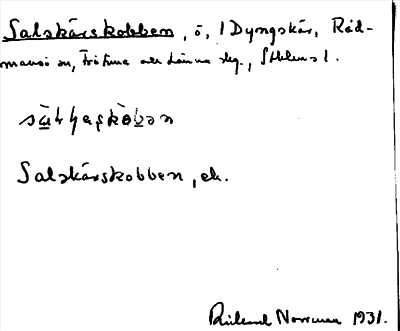 Salskärskobben, ö, i Dyngskär, Råd-
mansö sn, Frötuna och Länna slg., Sthlms l.
Salskärskobben, ek.
Rickard Norrman 1931.